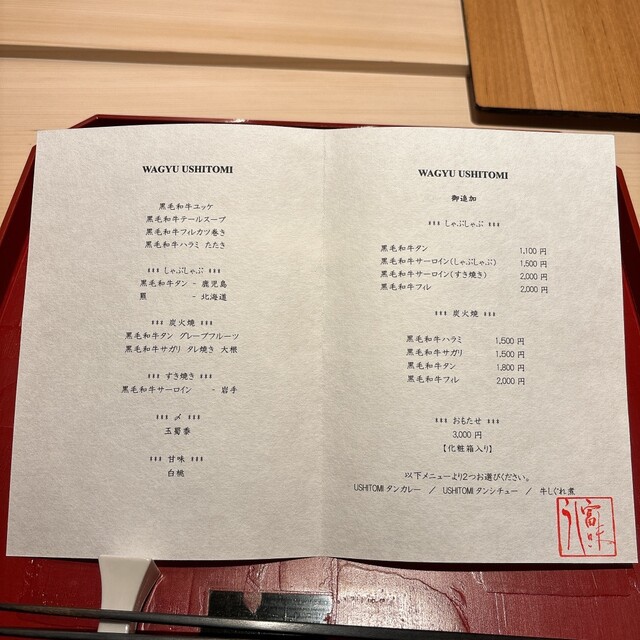 WAGYU USHITOMI
黒毛和牛ユッケ
黒毛和牛テールスープ
黒毛和牛フィレカツ巻き
黒毛和牛ハラミ たたき
*** しゃぶしゃぶ ***
黒毛和牛タン - 鹿児島
羆 - 北海道
*** 炭火焼 ***
黒毛和牛タン グレープフルーツ
黒毛和牛サガリ タレ焼き 大根
*** すき焼き ***
黒毛和牛サーロイン - 岩手
*** 〆 ***
玉蜀黍
*** 甘味 ***
白桃
WAGYU USHITOMI
御追加
*** しゃぶしゃぶ ***
黒毛和牛タン 1,100 円
黒毛和牛サーロイン(しゃぶしゃぶ) 1,500 円
黒毛和牛サーロイン(すき焼き) 2,000 円
黒毛和牛フィレ 2,000 円
*** 炭火焼 ***
黒毛和牛ハラミ 1,500 円
黒毛和牛サガリ 1,500 円
黒毛和牛タン 1,800 円
黒毛和牛フィレ 2,000 円
*** おもたせ ***
3,000 円
【化粧箱入り】
以下メニューより2つお選びください。
USHITOMI タンカレー / USHITOMI タンシチュー / 牛しぐれ煮
うし富味